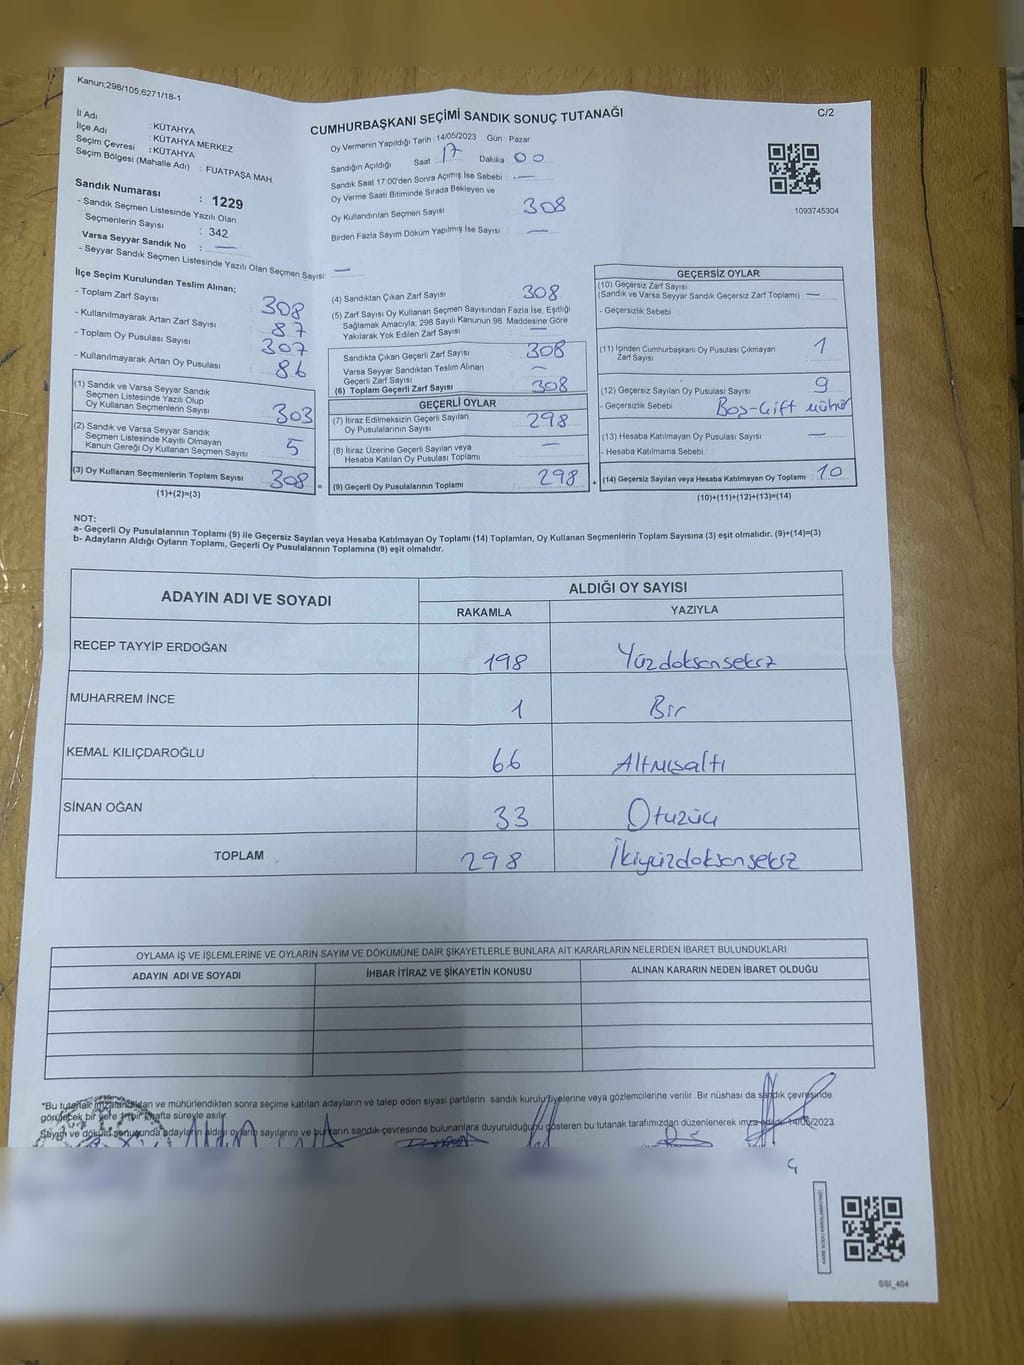 Kanun;298/105,6271/18-1
C/2
CUMHURBAŞKANI SEÇİMİ SANDIK SONUÇ TUTANAĞI
İl Adı : KÜTAHYA
İlçe Adı : KÜTAHYA MERKEZ
Seçim Çevresi : KÜTAHYA
Seçim Bölgesi (Mahalle Adı) : FUATPAŞA MAH.
Sandık Numarası : 1229
- Sandık Seçmen Listesinde Yazılı Olan
Seçmenlerin Sayısı : 342
Varsa Seyyar Sandık No : —
- Seyyar Sandık Seçmen Listesinde Yazılı Olan Seçmen Sayısı: —
Oy Vermenin Yapıldığı Tarih : 14/05/2023 Gün : Pazar
Sandığın Açıldığı Saat 17 Dakika 00
Sandık Saat 17:00'den Sonra Açımış İse Sebebi : —
Oy Verme Saati Bitiminde Sırada Bekleyen ve
Oy Kullandırılan Seçmen Sayısı 308
Birden Fazla Sayım Döküm Yapılmış İse Sayısı : —
1093745304
İlçe Seçim Kurulundan Teslim Alınan;
- Toplam Zarf Sayısı 308
- Kullanılmayarak Artan Zarf Sayısı 87
- Toplam Oy Pusulası Sayısı 307
- Kullanılmayarak Artan Oy Pusulası 86
(1) Sandık ve Varsa Seyyar Sandık
Seçmen Listesinde Yazılı Olup
Oy Kullanan Seçmenlerin Sayısı 303
(2) Sandık ve Varsa Seyyar Sandık
Seçmen Listesinde Kayıtlı Olmayan
Kanun Gereği Oy Kullanan Seçmen Sayısı 5
(3) Oy Kullanan Seçmenlerin Toplam Sayısı 308 =
(1)+(2)=(3)
(4) Sandıktan Çıkan Zarf Sayısı 308
(5) Zarf Sayısı Oy Kullanan Seçmen Sayısından Fazla İse, Eşitliği
Sağlamak Amacıyla, 298 Sayılı Kanunun 98. Maddesine Göre
Yakılarak Yok Edilen Zarf Sayısı —
Sandıkta Çıkan Geçerli Zarf Sayısı 308
Varsa Seyyar Sandıktan Teslim Alınan
Geçerli Zarf Sayısı —
(6) Toplam Geçerli Zarf Sayısı 308
GEÇERLİ OYLAR
(7) İtiraz Edilmeksizin Geçerli Sayılan
Oy Pusulasının Sayısı 298
(8) İtiraz Üzerine Geçerli Sayılan veya
Hesaba Katılan Oy Pusulası Toplamı —
(9) Geçerli Oy Pusulalarının Toplamı 298 +
GEÇERSİZ OYLAR
(10) Geçersiz Zarf Sayısı
(Sandık ve Varsa Seyyar Sandık Geçersiz Zarf Toplamı) : —
- Geçersizlik Sebebi
(11) İçinden Cumhurbaşkanı Oy Pusulası Çıkmayan
Zarf Sayısı 1
(12) Geçersiz Sayılan Oy Pusulası Sayısı 9
- Geçersizlik Sebebi : Boş-Çift mühür
(13) Hesaba Katılmayan Oy Pusulası Sayısı —
- Hesaba Katılmama Sebebi :
(14) Geçersiz Sayılan veya Hesaba Katılmayan Oy Toplamı : 10
(10)+(11)+(12)+(13)=(14)
NOT:
a- Geçerli Oy Pusulalarının Toplamı (9) ile Geçersiz Sayılan veya Hesaba Katılmayan Oy Toplamı (14) Toplamları, Oy Kullanan Seçmenlerin Toplam Sayısına (3) eşit olmalıdır. (9)+(14)=(3)
b- Adayların Aldığı Oyların Toplamı, Geçerli Oy Pusulalarının Toplamına (9) eşit olmalıdır.
ADAYIN ADI VE SOYADI
ALDIĞI OY SAYISI
RAKAMLA YAZIYLA
RECEP TAYYİP ERDOĞAN 198 Yüzdoksansekiz
MUHARREM İNCE 1 Bir
KEMAL KILIÇDAROĞLU 66 Altmışaltı
SİNAN OĞAN 33 Otuzüç
TOPLAM 298 İkiyüzdoksansekiz
OYLAMA İŞ VE İŞLEMLERİNE VE OYLARIN SAYIM VE DÖKÜMÜNE DAİR ŞİKAYETLERLE BUNLARA AİT KARARLARIN NELERDEN İBARET BULUNDUKLARI
ADAYIN ADI VE SOYADI İHBAR İTİRAZ VE ŞİKAYETİN KONUSU ALINAN KARARIN NEDEN İBARET OLDUĞU
*Bu tutanak imzalandıktan ve mühürlendikten sonra seçime katılan adayların ve talep eden siyasi partilerin sandık kurulu üyelerine veya gözlemcilerine verilir. Bir nüshası da sandık çevresinde
görülecek bir yere 1 bir hafta süreyle asılır.
Sayım ve döküm sonucunda adayların aldığı oyların sayılarını ve bunların sandık çevresinde bulunanlara duyurulduğunu gösteren bu tutanak tarafımızdan düzenlenerek imza edildi. 14/05/2023
SSI_404